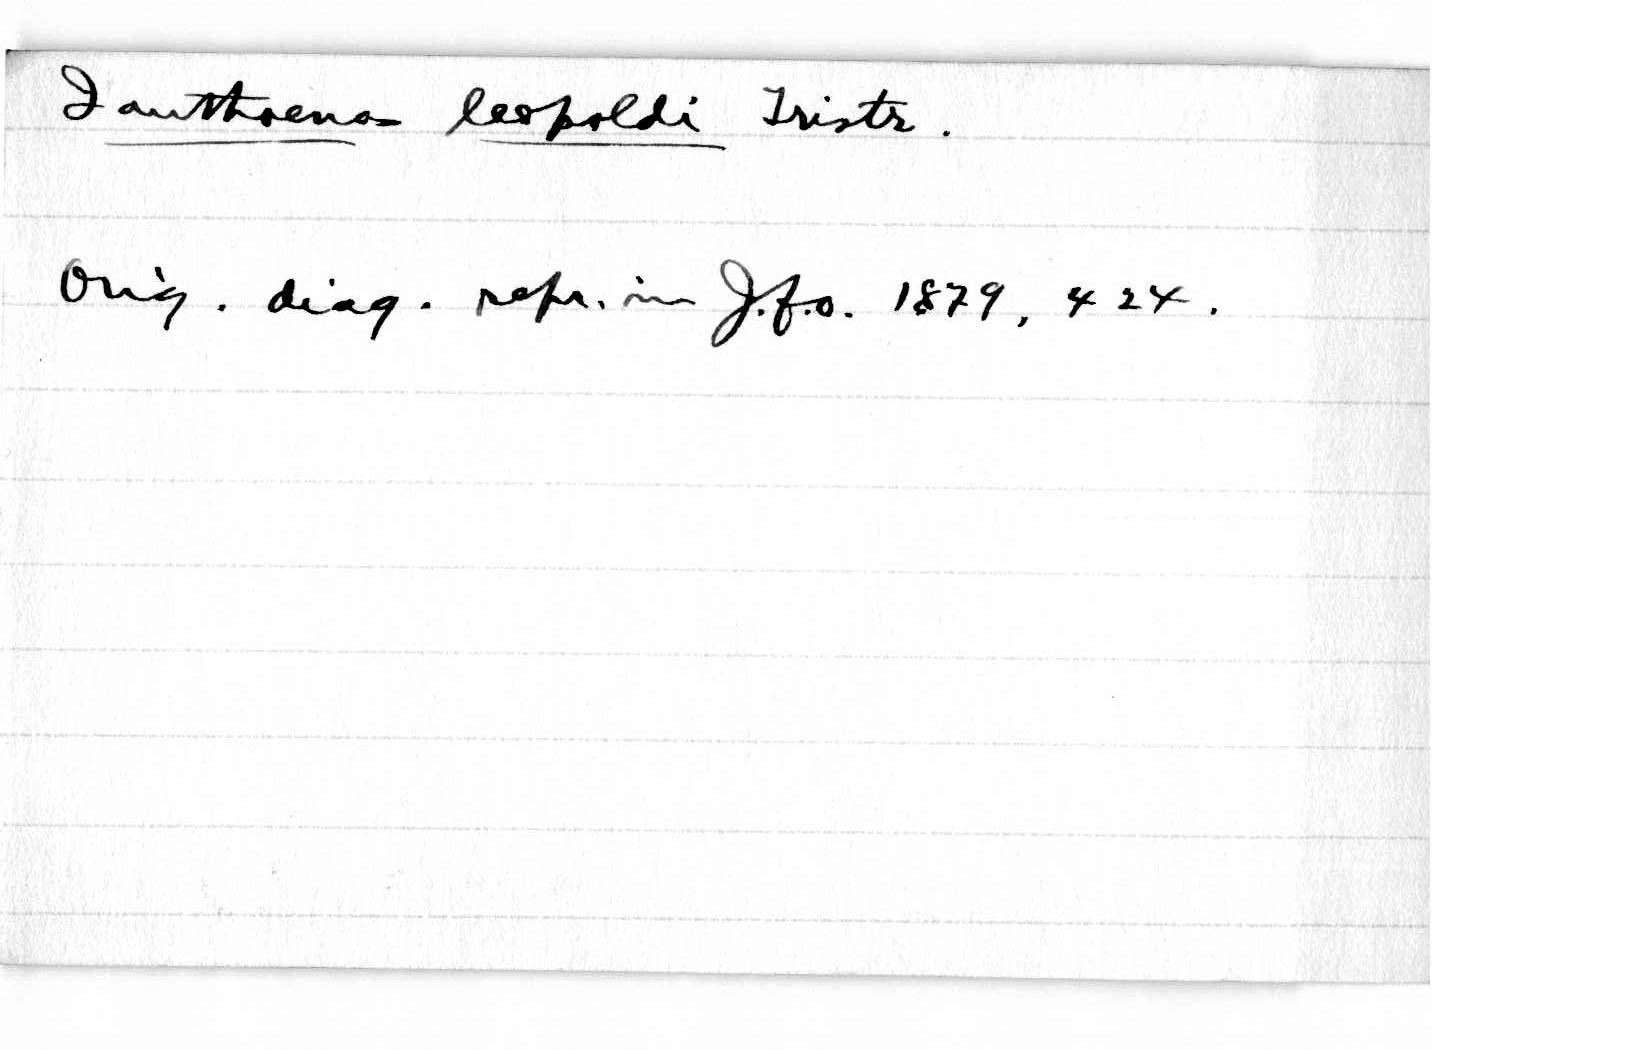 Ianthoenas leopoldi Tristr.
Orig. diag. repr. in J.f.O. 1879, 424.